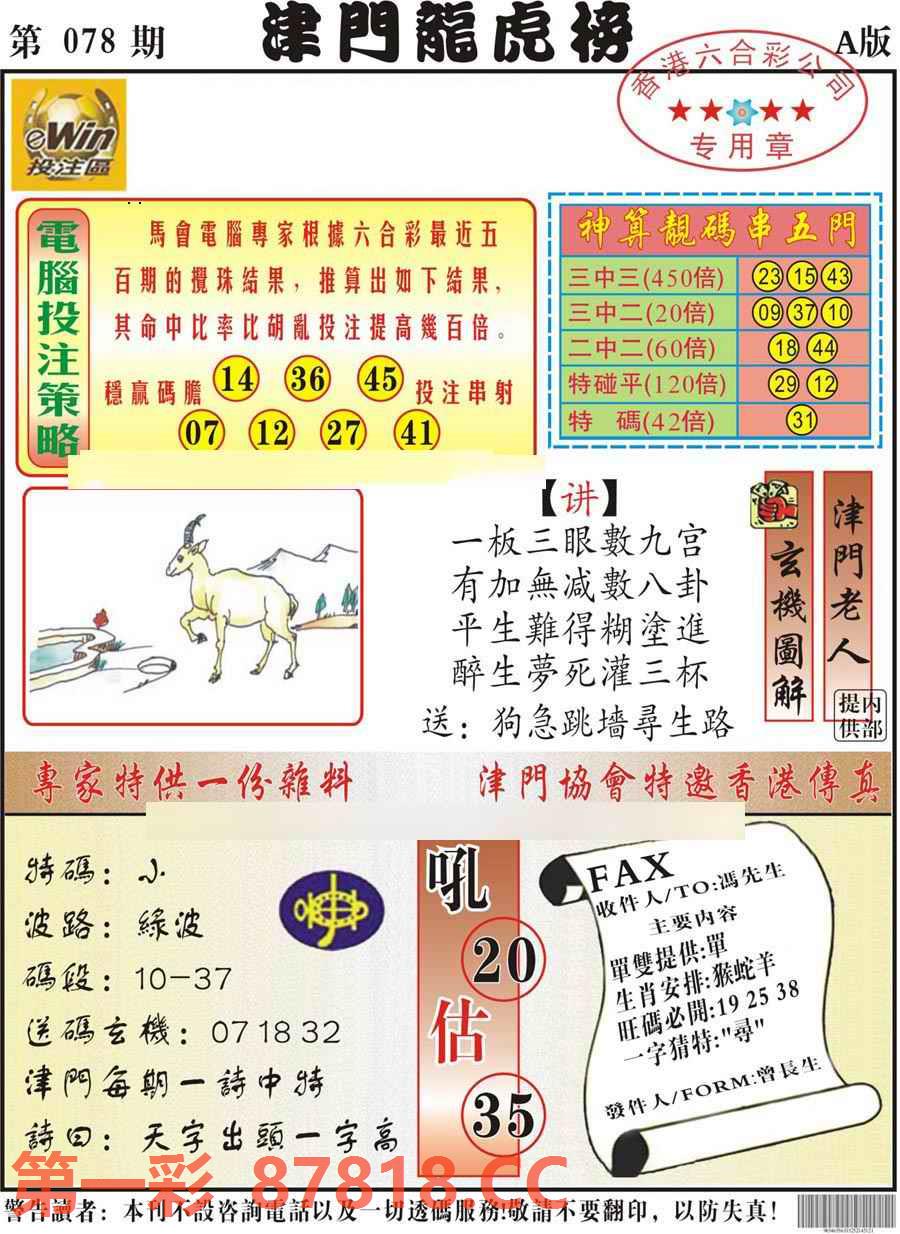 第 078 期
津門龍虎榜
A版
香港六合彩公司
专用章
eWin
投注區
電腦投注策略
馬會電腦專家根據六合彩最近五
百期的攪珠結果，推算出如下結果，
其命中比率比胡亂投注提高幾百倍。
穩贏碼膽 14 36 45 投注串射
07 12 27 41
神算靚碼串五門
三中三(450倍) 23 15 43
三中二(20倍) 09 37 10
二中二(60倍) 18 44
特碰平(120倍) 29 12
特 碼(42倍) 31
【讲】
一板三眼數九宫
有加無減數八卦
平生難得糊塗進
醉生夢死灌三杯
送：狗急跳墙尋生路
玄機圖解
津門老人
内部提供
專家特供一份雜料
津門協會特邀香港傳真
特碼：小
波路：緑波
碼段：10-37
送碼玄機：07 18 32
津門每期一詩中特
詩曰：天字出頭一字高
吼
20
估
35
FAX
收件人/TO:馮先生
主要内容
單雙提供:單
生肖安排:猴蛇羊
旺碼必開:19 25 38
一字猜特:"尋"
發件人/FORM:曾長生
第一彩 87818.CC
警告讀者：本刊不設咨詢電話以及一切透碼服務!敬請不要翻印，以防失真!